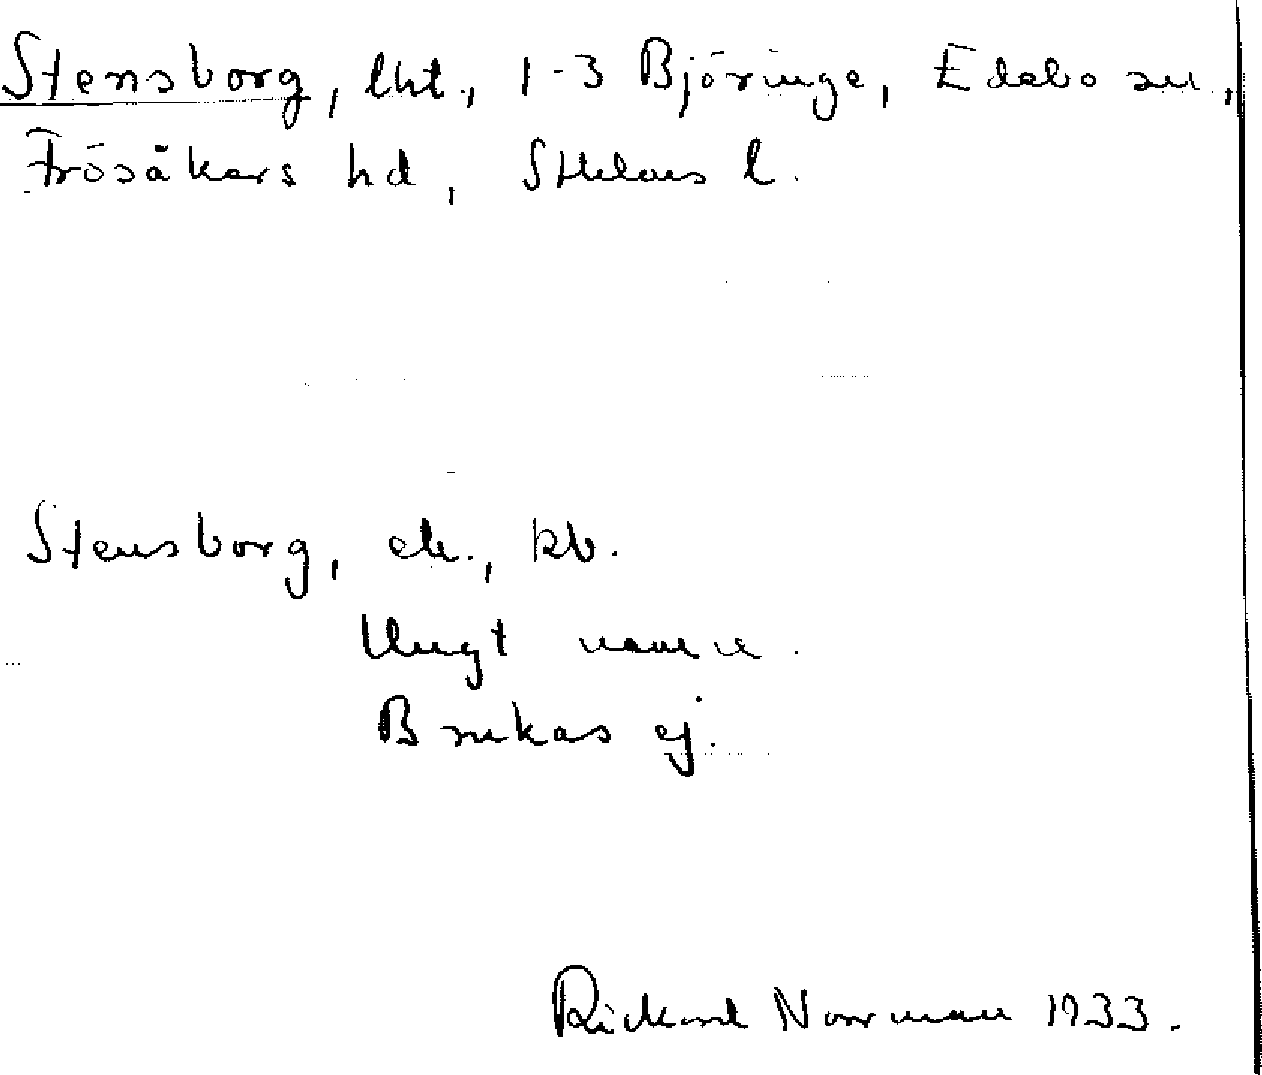 Stensborg, lht., 1-3 Björinge, Edebo sn,
Frösåkers hd, Sthlms l.
Stensborg, ck., kb.
Ungt namn.
Brukas ej.
Rickard Norrman 1933.